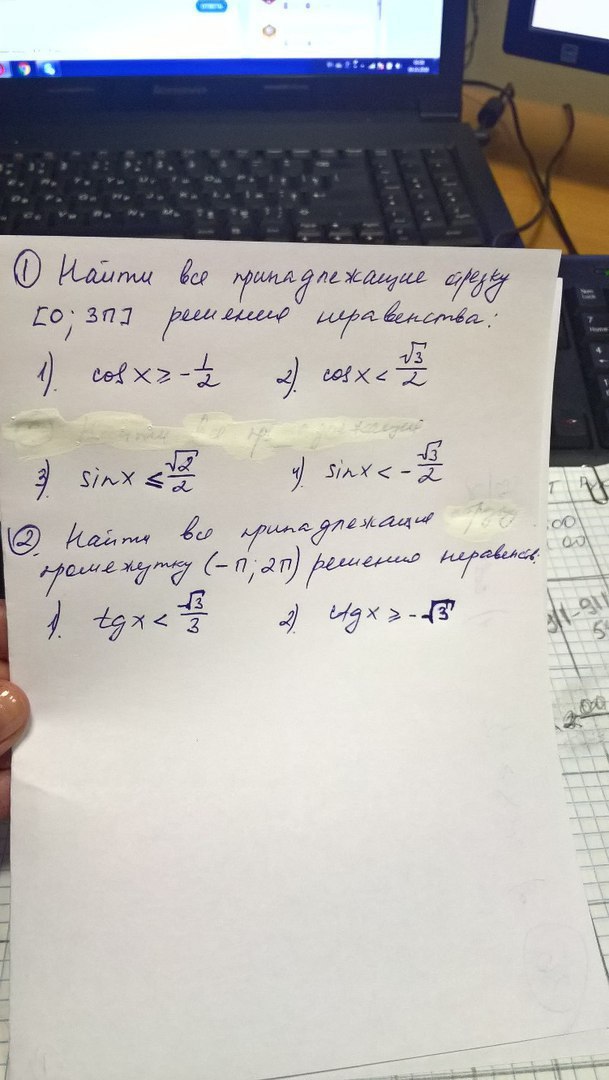 ① Найти все принадлежащие отрезку
[0; 3π] решения неравенства:
1). cos x ≥ -1/2 2). cos x < √3/2
3). sin x ≤ √2/2 4). sin x < -√3/2
② Найти все принадлежащие
промежутку (-π; 2π) решения неравенств.
1). tg x < √3/3 2). ctg x ≥ -√3